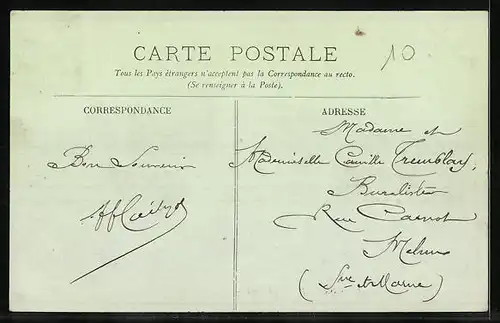 CARTE POSTALE
10
Tous les Pays étrangers n'acceptent pas la Correspondance au recto.
(Se renseigner à la Poste).
CORRESPONDANCE
Bon Souvenir
ADRESSE
Madame et
Mademoiselle Camille Tremblay,
Buraliste
Rue Carnot
Melun
(Sne et Marne)